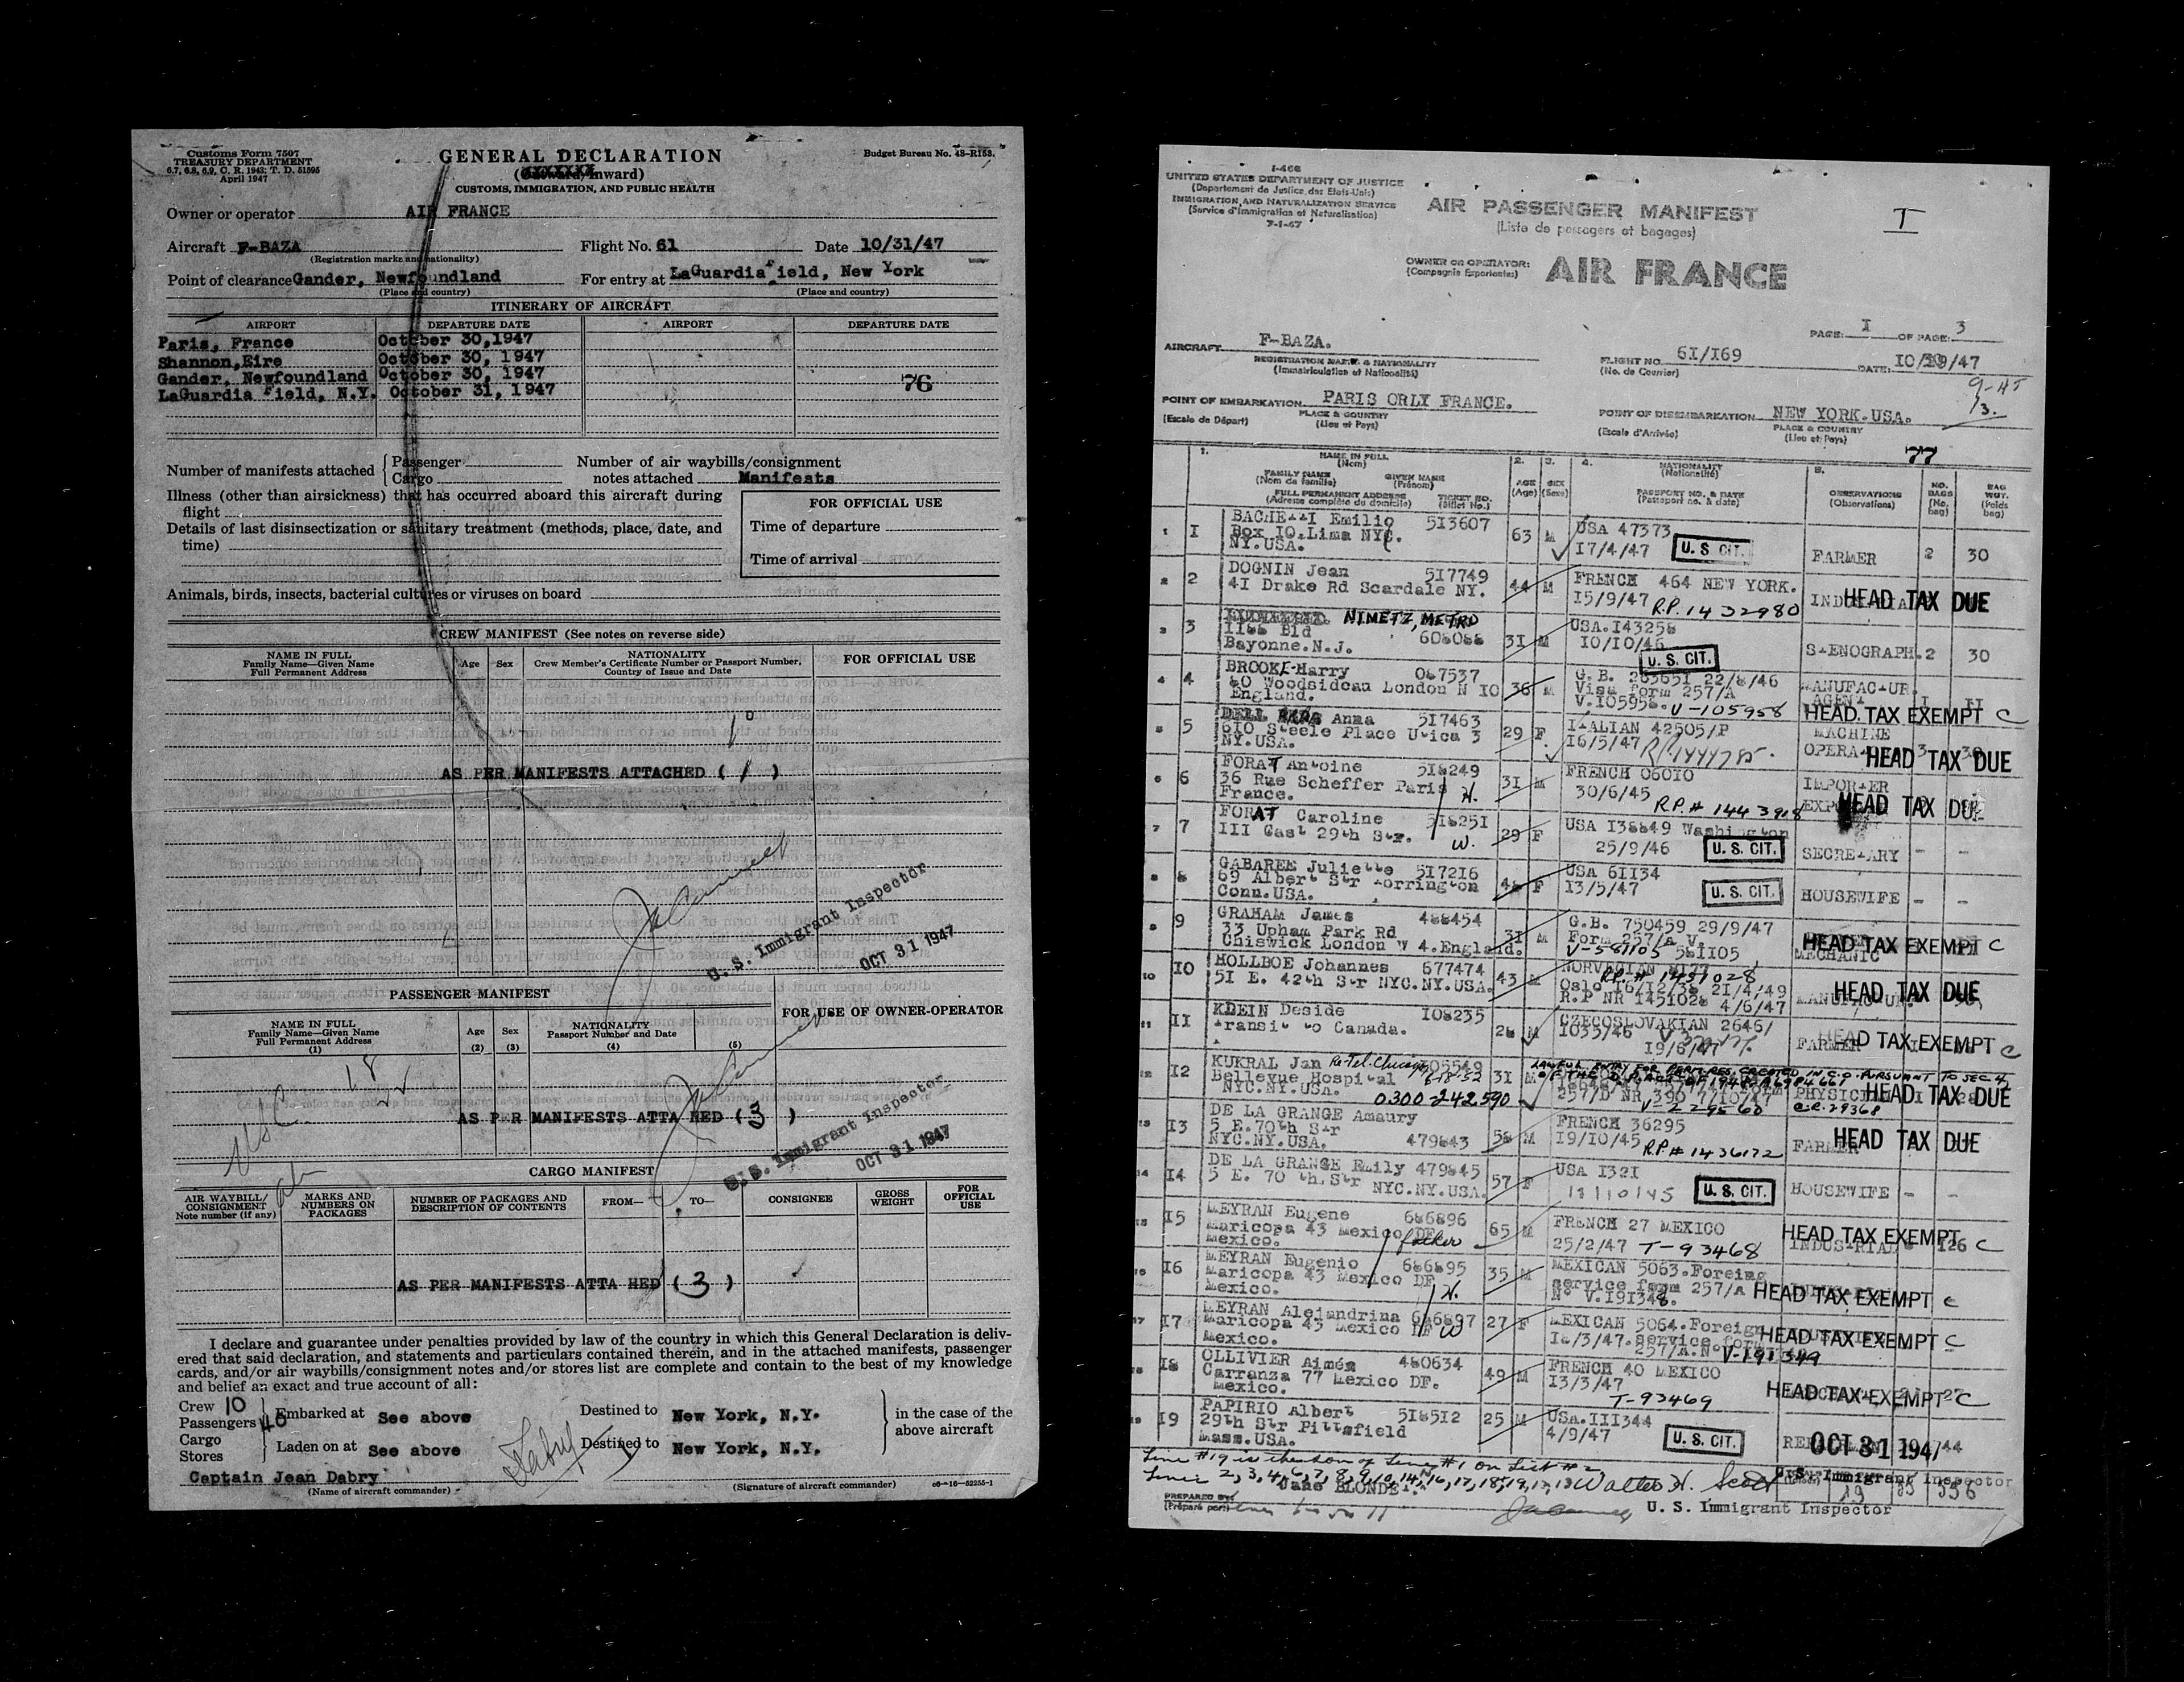 Customs Form 7507
TREASURY DEPARTMENT
6.7, 6.8, 6.9, C. R. 1943; T. D. 51595
April 1947
GENERAL DECLARATION
(Outward/Inward)
CUSTOMS, IMMIGRATION, AND PUBLIC HEALTH
Budget Bureau No. 48-R153.
Owner or operator AIR FRANCE
Aircraft F-BAZA Flight No. 61 Date 10/31/47
(Registration marks and nationality)
Point of clearance Gander, Newfoundland For entry at LaGuardia Field, New York
(Place and country) (Place and country)
ITINERARY OF AIRCRAFT
AIRPORT DEPARTURE DATE AIRPORT DEPARTURE DATE
Paris, France October 30,1947
Shannon,Eire October 30, 1947
Gander, Newfoundland October 30, 1947
76
LaGuardia Field, N.Y. October 31, 1947
Number of manifests attached { Passenger
Cargo
Number of air waybills/consignment
notes attached Manifests
Illness (other than airsickness) that has occurred aboard this aircraft during
flight
Details of last disinsectization or sanitary treatment (methods, place, date, and
time)
FOR OFFICIAL USE
Time of departure
Time of arrival
Animals, birds, insects, bacterial cultures or viruses on board
CREW MANIFEST (See notes on reverse side)
NAME IN FULL
Family Name—Given Name
Full Permanent Address
Age Sex
NATIONALITY
Crew Member's Certificate Number or Passport Number,
Country of Issue and Date
FOR OFFICIAL USE
AS PER MANIFESTS ATTACHED ( 1 )
U. S. Immigrant Inspector
OCT 31 1947
PASSENGER MANIFEST
FOR USE OF OWNER-OPERATOR
NAME IN FULL
Family Name—Given Name
Full Permanent Address
(1)
Age
(2)
Sex
(3)
NATIONALITY
Passport Number and Date
(4)
(5)
USC. 18
22
AS PER MANIFESTS ATTA HED ( 3 )
U. S. Immigrant Inspector
OCT 31 1947
CARGO MANIFEST
AIR WAYBILL/
CONSIGNMENT
Note number (if any)
MARKS AND
NUMBERS ON
PACKAGES
NUMBER OF PACKAGES AND
DESCRIPTION OF CONTENTS
FROM— TO— CONSIGNEE
GROSS
WEIGHT
FOR
OFFICIAL
USE
AS PER MANIFESTS ATTA HED ( 3 )
I declare and guarantee under penalties provided by law of the country in which this General Declaration is deliv-
ered that said declaration, and statements and particulars contained therein, and in the attached manifests, passenger
cards, and/or air waybills/consignment notes and/or stores list are complete and contain to the best of my knowledge
and belief an exact and true account of all:
Crew 10
Passengers 40
Cargo
Stores
Embarked at See above Destined to New York, N.Y.
Laden on at See above Destined to New York, N.Y.
in the case of the
above aircraft
Captain Jean Dabry
Dabry
(Name of aircraft commander) (Signature of aircraft commander) c6—16—52255-1
I-466
UNITED STATES DEPARTMENT OF JUSTICE
(Departement de Justice des Etats-Unis)
IMMIGRATION AND NATURALIZATION SERVICE
(Service d'Immigration et Naturalisation)
7-1-47
AIR PASSENGER MANIFEST
(Liste de passagers et bagages)
I
OWNER OR OPERATOR:
(Compagnie Exportante:)
AIR FRANCE
PAGE: I OF PAGE: 3
AIRCRAFT F-BAZA.
REGISTRATION MARKS & NATIONALITY
(Immatriculation et Nationalité)
FLIGHT NO. 6I/I69
(No. de Courrier)
DATE: IO/29/47
POINT OF EMBARKATION PARIS ORLY FRANCE.
(Escale de Départ) PLACE & COUNTRY
(Lieu et Pays)
POINT OF DISEMBARKATION NEW YORK.USA.
(Escale d'Arrivée) PLACE & COUNTRY
(Lieu et Pays)
77
1. NAME IN FULL
(Nom)
FAMILY NAME GIVEN NAME
(Nom de famille) (Prénom)
FULL PERMANENT ADDRESS TICKET NO.
(Adresse complète du domicile) (Billet No.)
2. AGE
(Age)
3. SEX
(Sexe)
4. NATIONALITY
(Nationalité)
PASSPORT NO. & DATE
(Passeport no. & date)
5. OBSERVATIONS
(Observations)
NO. BAGS
(No. bag)
BAG WGT.
(Poids bag)
1 I Emilio 5I3607 63 M USA 47373
Box IO.Lima NYC.
NY.USA. I7/4/47 U. S. CIT. FARMER 2 30
2 2 DOGNIN Jean 5I7749 44 M FRENCH 464 NEW YORK.
4I Drake Rd Scardale NY. I5/9/47 R.P. 1432980 HEAD TAX DUE
3 3 NIMETZ, METRO
Bayonne.N.J. 3I M USA.I43258
IO/IO/46 U. S. CIT. 2 30
4 4 BROOKE Harry 087537 36 M G.B. 22/8/46
60 Woodsideau London N IO
England. Visa form 257/A
V.I05958. V-105958 HEAD TAX EXEMPT C
5 5 DELL Anna 5I7463 29 F ITALIAN 42505/P
6I0 Steele Place Utica 3
NY.USA. I6/5/47 MACHINE
HEAD TAX DUE
6 6 FORAT Antoine 5I8249 3I M FRENCH 060I0
36 Rue Scheffer Paris
France. H. 30/6/45 R.P.# 1443918 HEAD TAX DUE
7 7 FORAT Caroline 5I825I 29 F USA I38849 Washington
III East 29th Str. W. 25/9/46 U. S. CIT. SECRETARY - -
8 8 GABAREE Juliette 5I72I6 48 F USA 6II34
69 Albert Str Torrington
Conn.USA. I3/5/47 U. S. CIT. HOUSEWIFE - -
9 9 GRAHAM James 488454 3I M G.B. 750459 29/9/47
33 Upham Park Rd
Chiswick London W 4.England. Form 257/a V.
V-581105 58II05 MECHANIC HEAD TAX EXEMPT C
10 IO HOLLBOE Johannes 677474 43 M NORVEGIAN
R.P.# 1451028
5I E. 42th Str NYC.NY.USA. Oslo I6/I2/38 2I/4/49
R.P NR I45I028 4/6/47 HEAD TAX DUE
11 II KLEIN Deside I08235 28 M CZECOSLOVAKIAN 2646/
Transit to Canada. I035/46
I9/8/47 FARMER HEAD TAX EXEMPT C
12 I2 KUKRAL Jan 3I M LAWFUL ENTRY FOR PERM. RES. CREATED IN C.O. PURSUANT TO SEC. 4,
Bellevue Hospital
NYC.NY.USA. 0300-242590 257/D NR 390 7/I0/47 HEAD TAX DUE
V-229560 C.R. 29368
13 I3 DE LA GRANGE Amaury
5 E.70th Str
NYC.NY.USA. 479843 58 M FRENCH 36295
I9/I0/45 R.P.# 1436172 FARMER HEAD TAX DUE
14 I4 DE LA GRANGE Emily 479845 57 F USA I32I
5 E. 70 th.Str NYC.NY.USA. 18/10/45 U. S. CIT. HOUSEWIFE - -
15 I5 MEYRAN Eugene 686896 65 M FRENCH 27 MEXICO
Maricopa 43 Mexico DF
Mexico. father 25/2/47 T-93468 INDUSTRIAL HEAD TAX EXEMPT C
16 I6 MEYRAN Eugenio 686895 35 M MEXICAN 5063.Foreing
Maricopa 43 Mexico DF
Mexico. H. service form 257/A
N° V.I9I348. HEAD TAX EXEMPT C
17 I7 MEYRAN Alejandrina 686897 27 F MEXICAN 5064.Foreign
Maricopa 43 Mexico DF W
Mexico. I8/3/47.service form
257/A.N° V-191349 HEAD TAX EXEMPT C
18 I8 OLLIVIER Aimé 480634 49 M FRENCH 40 MEXICO
Carranza 77 Mexico DF.
Mexico. I3/3/47
T-93469 HEAD TAX EXEMPT C
19 I9 PAPIRIO Albert 5I85I2 25 M USA.III344
29th Str Pittsfield
Mass.USA. 4/9/47 U. S. CIT. OCT 31 1947
Line #19 is Line #1 on List #2
Walter H. Scott U. S. Immigrant Inspector
Jane BLONDET.
PREPARED BY
(Préparé par:)
U. S. Immigrant Inspector